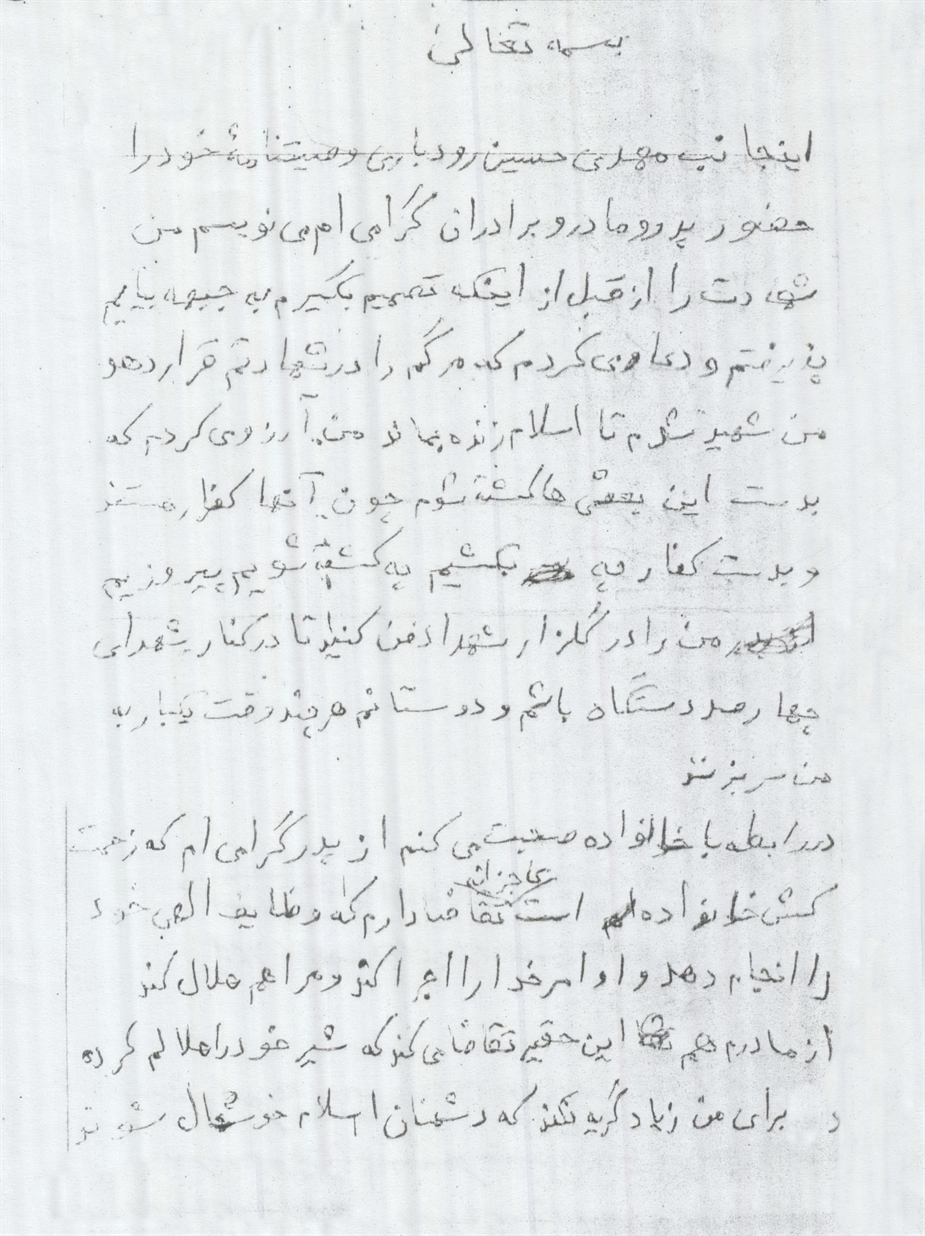 بسمه تعالی
اینجانب مهدی حسین رودباری وصیتنامهٔ خود را
حضور پدر و مادر و برادران گرامی ام می نویسم من
شهادت را از قبل از اینکه تصمیم بگیرم به جبهه بیایم
پذیرفتم و دعا می کردم که مرگم را در شهادتم قرار دهد
من شهید شوم تا اسلام زنده بماند من آرزو می کردم که
بدست این بعثی ها کشته شوم چون آنها کفار هستند
و بدست کفار چه بکشیم چه کشته شویم پیروزیم
من را در گلزار شهدا دفن کنید تا در کنار شهدای
چهارصد دستگاه باشم و دوستانم هر چند وقت یکبار به
من سر بزنند
در رابطه با خانواده صحبت می کنم از پدر گرامی ام که زحمت
کش خانواده ام است عاجزانه تقاضا دارم که وظایف الهی خود
را انجام دهد و اوامر خدا را اجرا کند و مرا هم حلال کند
از مادرم هم این حقیر تقاضا می کند که شیر خود را حلالم کرده
و برای من زیاد گریه نکند که دشمنان اسلام خوشحال شوند